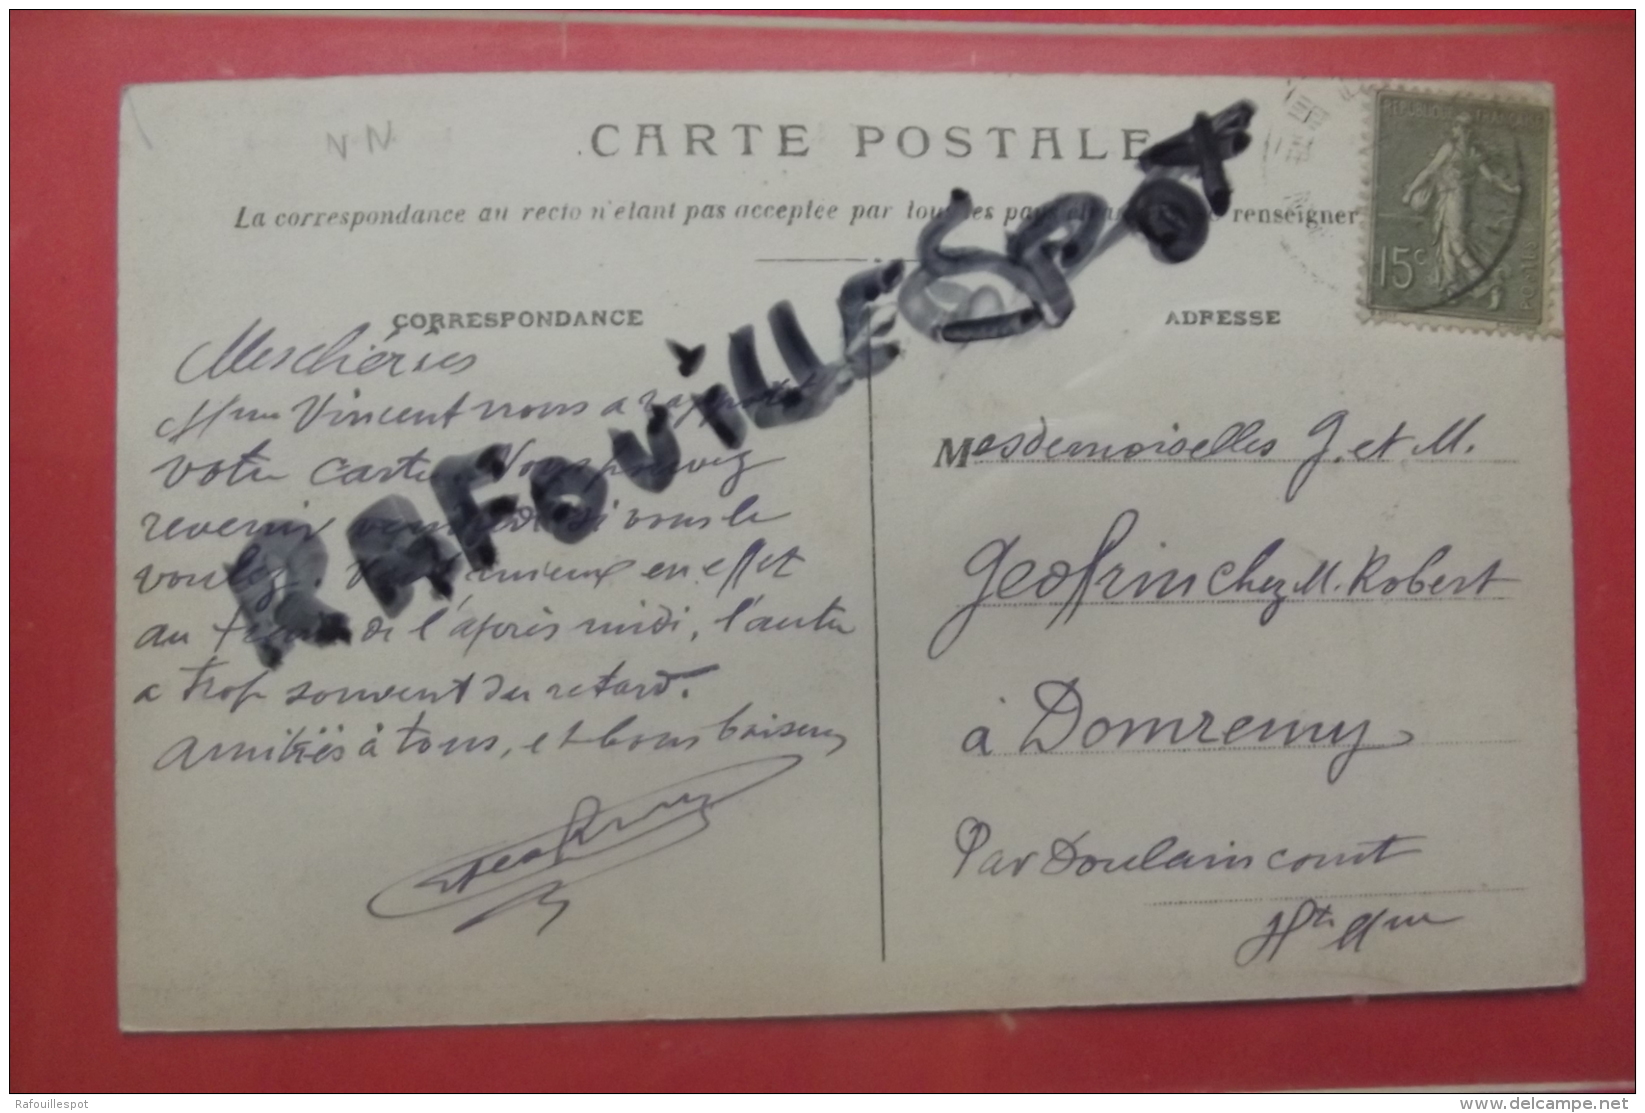 N-N
CARTE POSTALE
La correspondance au recto n'étant pas acceptée par tous les pays renseigner
REPUBLIQUE FRANÇAISE
15c
POSTES
CORRESPONDANCE
ADRESSE
RAFOUILLESPOT
Mes chéries
Mme Vincent nous a rapporté
votre carte. Vous pouvez
revenir vendredi si vous le
voulez. mieux en effet
au train de l'après midi, l'autre
a trop souvent du retard.
Amitiés à tous, et bons baisers
Geoffrin
Mesdemoiselles G. et M.
Geoffrin chez M. Robert
à Domremy
Par Doulaincourt
Hte Mne
Rafouillespot
www.delcampe.net